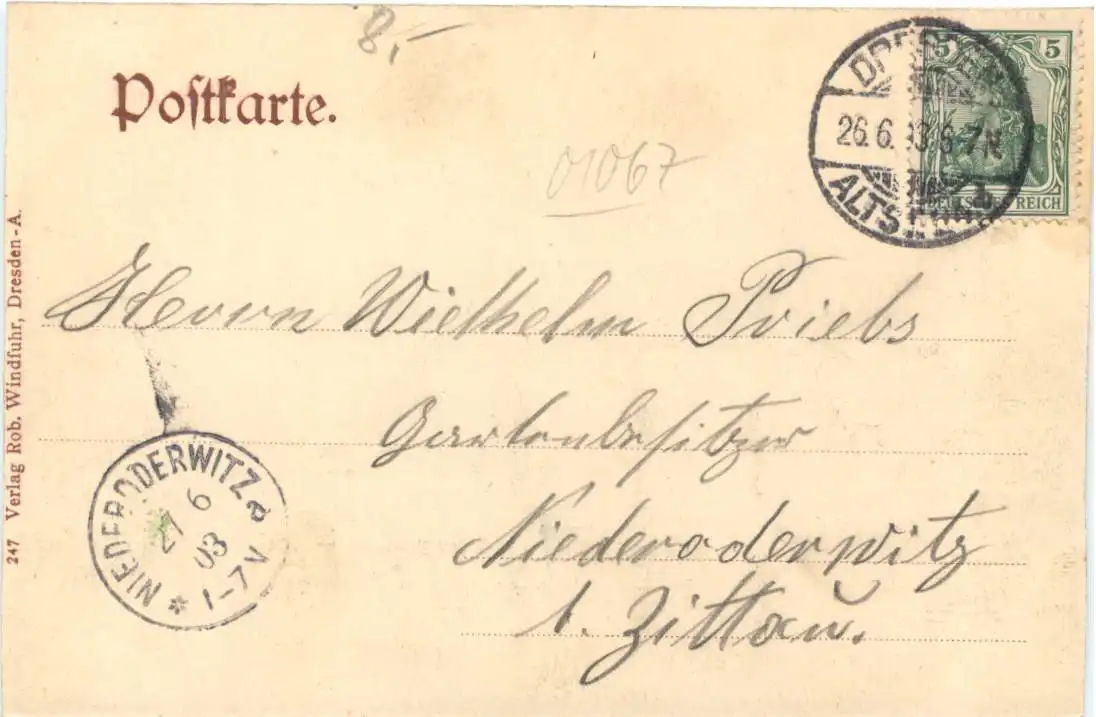 8,-
Postkarte.
01067
DRESDEN
26.6.03.6-7N
ALTSTADT
5 5
DEUTSCHES REICH
Herrn Wielhelm Priebs
Gartenbesitzer
Niederoderwitz
b. Zittau.
NIEDERODERWITZ
27 6
03
1-7V
247 Verlag Rob. Windfuhr, Dresden-A.